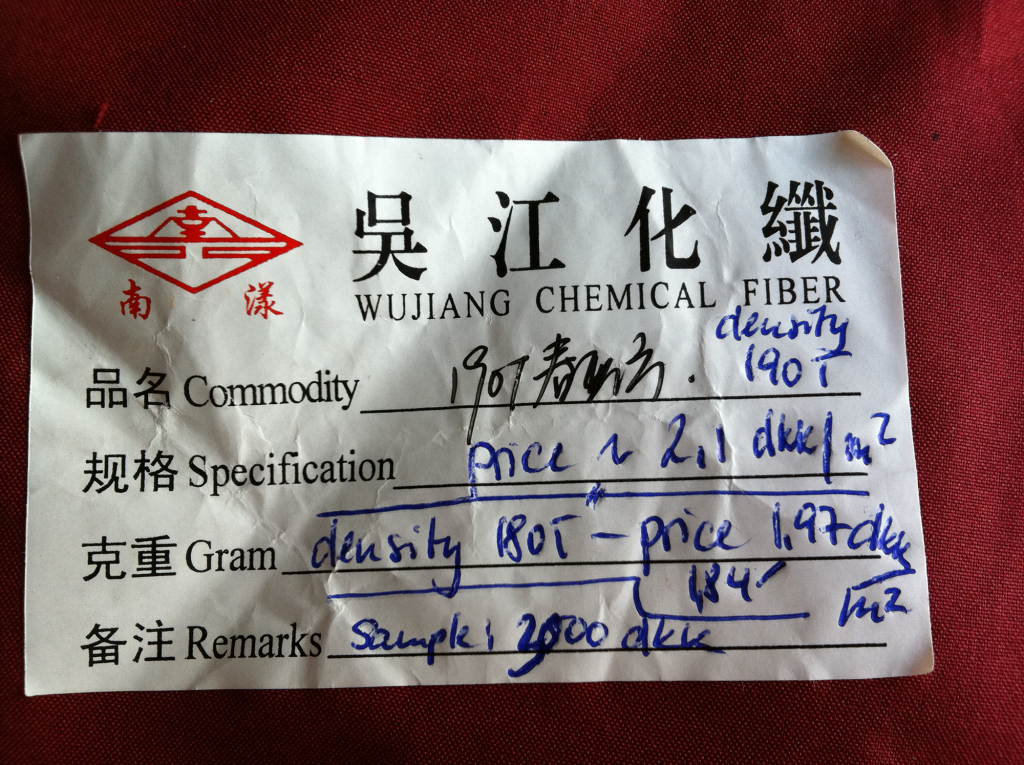 吳江化纖
南漾
WUJIANG CHEMICAL FIBER
density
品名 Commodity 190T春亚纺. 190T
规格 Specification price ~ 2,1 dkk/m²
克重 Gram density 180T – price 1,97 dkk/m²
1,84
备注 Remarks Sample: 2500 dkk